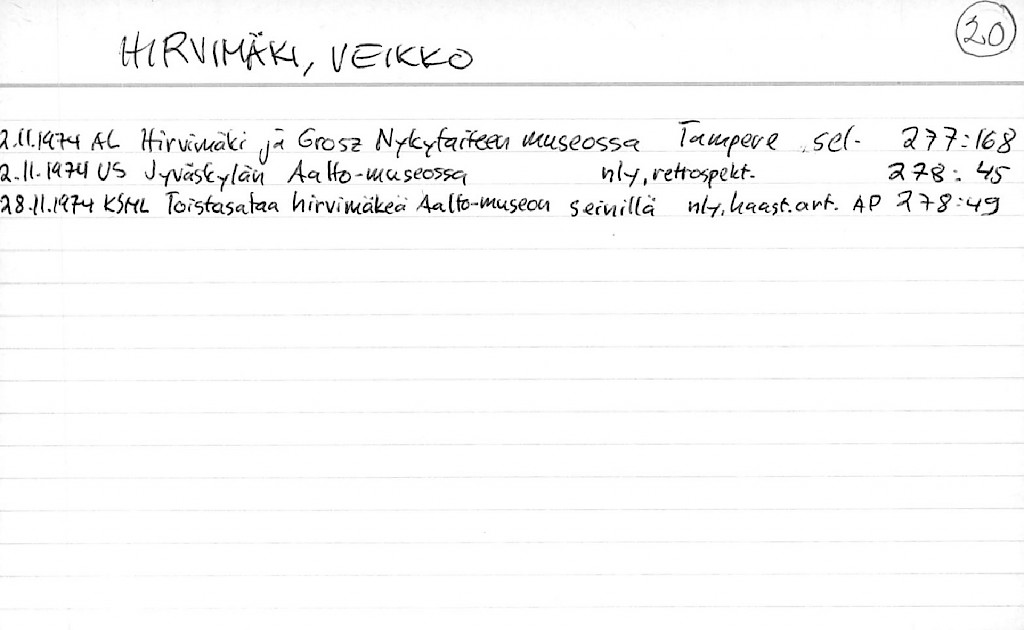 20
HIRVIMÄKI, VEIKKO
2.11.1974 AL Hirvimäki ja Grosz Nykytaiteen museossa Tampere, sel- 277:168
2.11.1974 US Jyväskylän Aalto-museossa nly, rettrospekt. 278:45
28.11.1974 KSML Toistasataa hirvimäkeä Aalto-museon seinillä nly, haast.art. AP 278:49